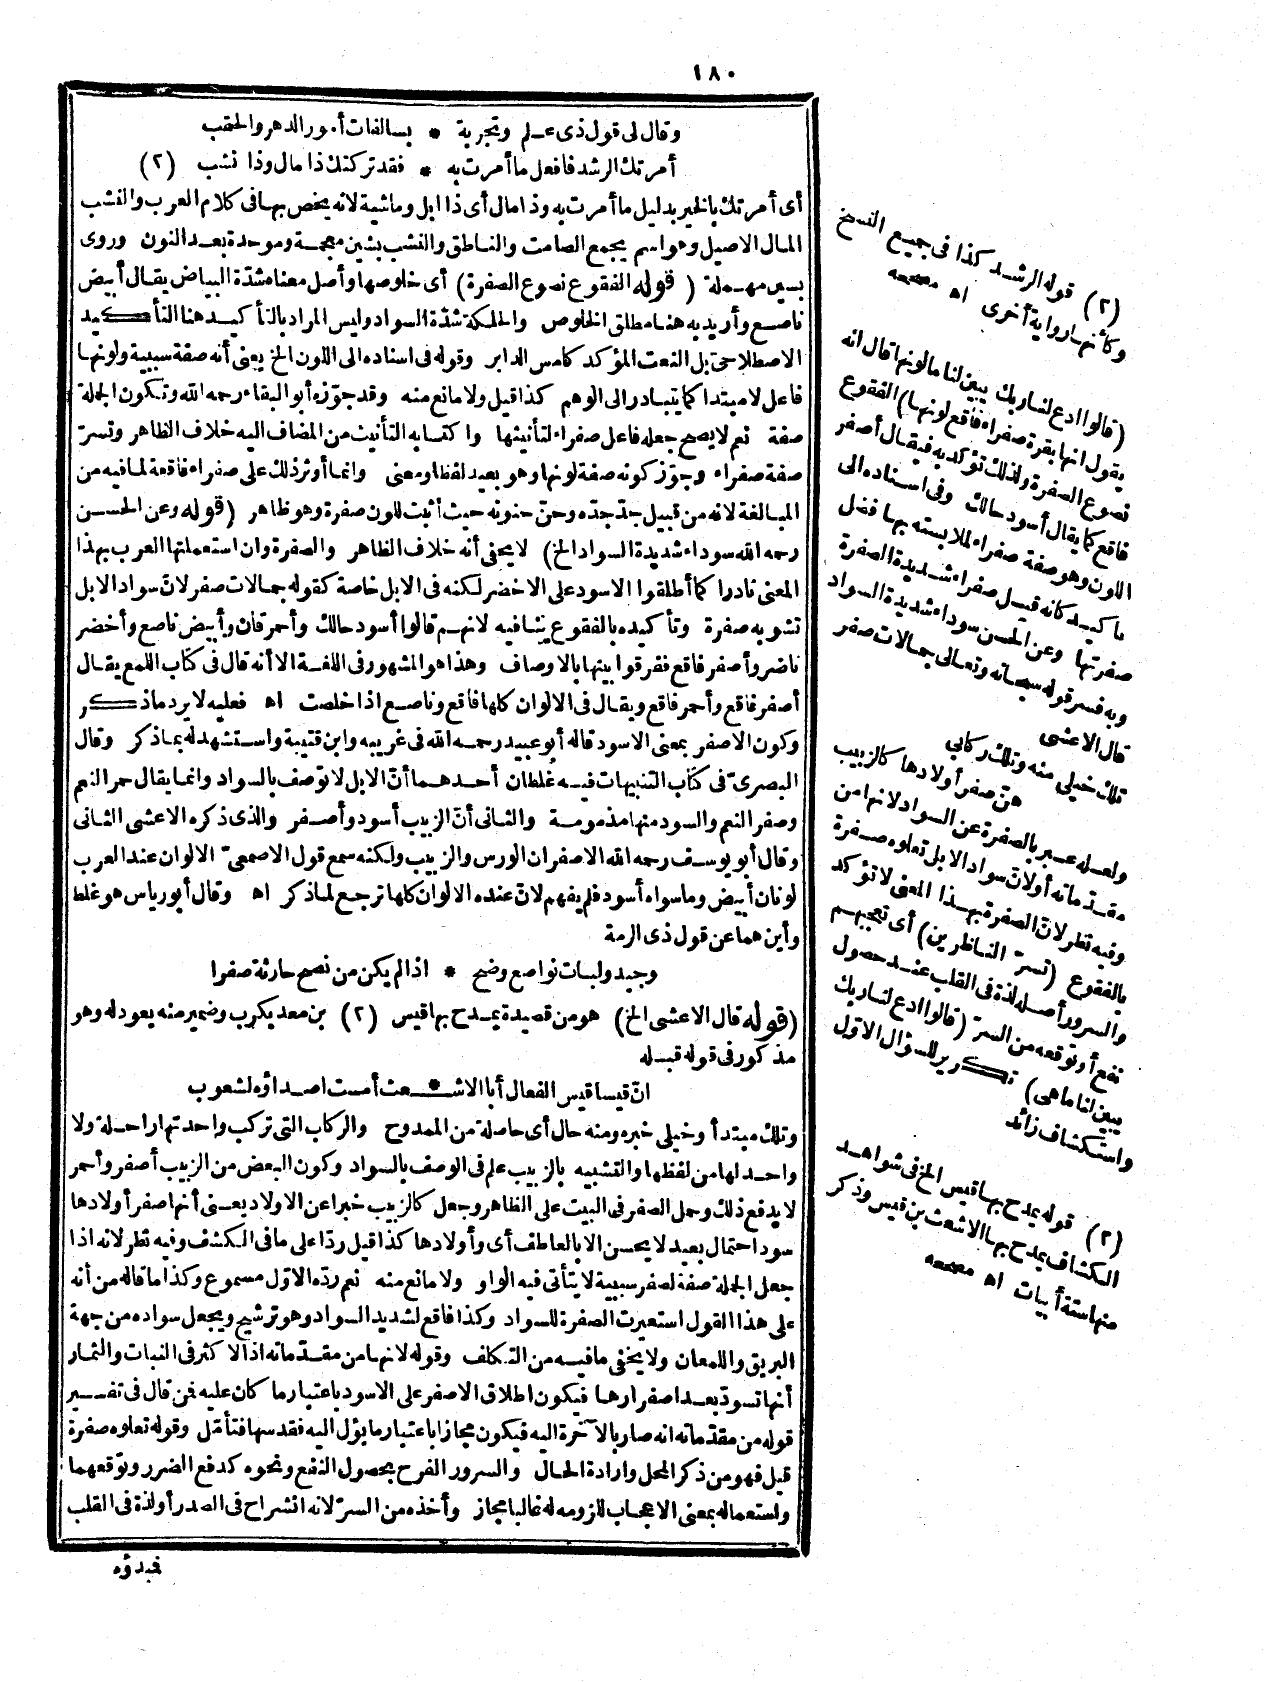 ١٨٠
وقال لى قول ذى علم وتجربة * بسالفات أمور الدهر والحقب
أمرتك الرشد فافعل ما أمرت به * فقد تركتك ذا مال وذا نشب (٢)
أى أمرتك بالخير بدليل ما أمرت به وذا مال أى ذا ابل وماشية لانه يخص بها فى كلام العرب والنشب
المال الاصيل وهو اسم يجمع الصامت والناطق والنشب بشين معجمة وموحدة بعد النون وروى
بسين مهملة (قوله الفقوع نصوع الصفرة) أى خلوصها وأصل معناه شدّة البياض يقال أبيض
ناصع وأريد به هنا مطلق الخلوص والحلكة شدّة السواد وليس المراد بالتأكيد هنا التأكيد
الاصطلاحى بل النعت المؤكد كامس الدابر وقوله فى اسناده الى اللون الخ يعنى أنه صفة سببية ولونها
فاعل لا مبتدا كما يتبادر الى الوهم كذا قيل ولا مانع منه وقد جوّزه أبو البقاء رحمه الله وتكون الجملة
صفة نعم لا يصح جعله فاعل صفراء لتأنيثها واكتسابه التأنيث من المضاف اليه خلاف الظاهر وتسرّ
صفة صفراء وجوّز كونه صفة لونها وهو بعيد لفظا ومعنى وانما أوثر ذلك على صفراء فاقعة لما فيه من
المبالغة لانه من قبيل جدّ جدّه وجنّ جنونه حيث أثبت للون صفرة وهو ظاهر (قوله وعن الحسن
رحمه الله سوداء شديدة السواد الخ) لا يخفى أنه خلاف الظاهر والصفرة وان استعملتها العرب بهذا
المعنى نادرا كما أطلقوا الاسود على الاخضر لكنه فى الابل خاصة كقوله جمالات صفر لانّ سواد الابل
تشوبه صفرة وتأكيده بالفقوع ينافيه لانهم قالوا أسود حالك وأحمر قان وأبيض ناصع وأخضر
ناضر وأصفر فاقع ففرقوا بينها بالاوصاف وهذا هو المشهور فى اللغة الا أنه قال فى كتاب اللمع يقال
أصفر فاقع وأحمر فاقع ويقال فى الالوان كلها فاقع وناصع اذا خلصت اه فعليه لا يرد ما ذكر
وكون الاصفر بمعنى الاسود قاله أبو عبيد رحمه الله فى غريبه وابن قتيبة واستشهد له بما ذكر وقال
البصرىّ فى كتاب التنبيهات فيه غلطان أحدهما أنّ الابل لا توصف بالسواد وانما يقال حمر النعم
وصفر النعم والسود منها مذمومة والثانى أنّ الزبيب أسود وأصفر والذى ذكره الاعشى الثانى
وقال أبو يوسف رحمه الله الاصفران الورس والزبيب ولكنه سمع قول الاصمعىّ الالوان عند العرب
لونان أبيض وما سواه أسود فلم يفهم لانّ عنده الالوان كلها ترجع لما ذكر اه وقال أبو رياس هو غلط
وأين هما عن قول ذى الرمة
وجيد ولبات نواصع وضح * اذا لم يكن من نضح حارثة صفرا
(قوله قال الاعشى الخ) هو من قصيدة يمدح بها قيس (٢) بن معد يكرب وضمير منه يعود له وهو
مذكور فى قوله قبله
انّ قيسا قيس الفعال أبا الاشـ*ـعث أمست اصداؤه لشعوب
وتلك مبتدأ وخيلى خبره ومنه حال أى حاصلة من الممدوح والركاب التى تركب واحدتها راحلة ولا
واحد لها من لفظها والتشبيه بالزبيب علم فى الوصف بالسواد وكون البعض من الزبيب أصفر وأحمر
لا يدفع ذلك وحمل الصفر فى البيت على الظاهر وجعل كالزبيب خبرا عن الاولاد يعنى أنها صفر أولادها
سود احتمال بعيد لا يحسن الا بالعاطف أى وأولادها كذا قيل ردّا على ما فى الكشف وفيه نظر لانه اذا
جعل الجملة صفة لصفر سببية لا يتأتى فيه الواو ولا مانع منه نعم ردّه الاوّل مسموع وكذا ما قاله من أنه
على هذا القول استعيرت الصفرة للسواد وكذا فاقع لشديد السواد وهو ترشيح ويجعل سواده من جهة
البريق واللمعان ولا يخفى ما فيه من التكلف وقوله لانها من مقدّماته اذ الاكثر فى النبات والثمار
أنها تسودّ بعد اصفرارها فيكون اطلاق الاصفر على الاسود باعتبار ما كان عليه فمن قال فى تفسير
قوله من مقدّماته انه صار بالآخرة اليه فيكون مجازا باعتبار ما يؤل اليه فقد سها فتأمّل وقوله تعلوه صفرة
قيل فهو من ذكر المحل وارادة الحال والسرور الفرح بحصول النفع ونحوه كدفع الضرر وتوقعهما
واستعماله بمعنى الاعجاب للزومه له غالبا مجاز وأخذه من السرّ لانه انشراح فى الصدر أو لذة فى القلب
فمبدؤه
(٢) قوله الرشد كذا فى جميع النسخ
وكأنها رواية أخرى اه مصححه
(قالوا ادع لنا ربك يبين لنا ما لونها قال انه
يقول انها بقرة صفراء فاقع لونها) الفقوع
نصوع الصفرة ولذلك تؤكد به فيقال أصفر
فاقع كما يقال أسود حالك وفى اسناده الى
اللون وهو صفة صفراء لملابسته بها فضل
تأكيد كأنه قيل صفراء شديدة الصفرة
صفرتها وعن الحسن سوداء شديدة السواد
وبه فسر قوله سبحانه وتعالى جمالات صفر
قال الاعشى
تلك خيلى منه وتلك ركابى
هنّ صفر أولادها كالزبيب
ولعله عبر بالصفرة عن السواد لانها من
مقدّماته أو لانّ سواد الابل تعلوه صفرة
وفيه نظر لانّ الصفرة بهذا المعنى لا تؤكد
بالفقوع (تسرّ الناظرين) أى تعجبهم
والسرور أصله لذة فى القلب عند حصول
نفع أو توقعه من السرّ (قالوا ادع لنا ربك
يبين لنا ما هى) تكرير للسؤال الاوّل
واستكشاف زائد
(٢) قوله يمدح بها قيس الخ فى شواهد
الكشاف يمدح بها الاشعث بن قيس وذكر
منها ستة أبيات اه مصححه